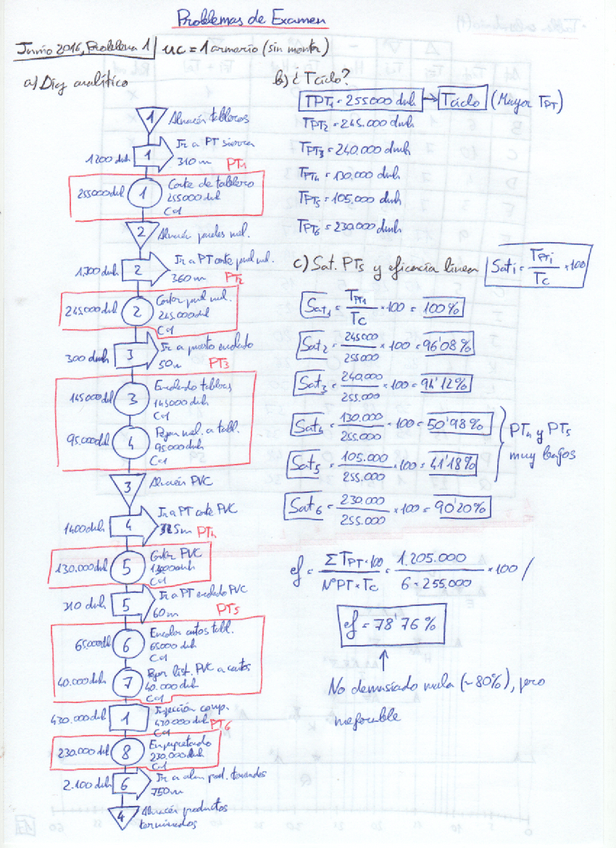 Problemas de Examen
Junio 2016, Problema 1 | UC = 1 armario (sin montar)
a) Diag analítico
1 Almacén tableros
1200 dmh 1 Ir a PT sierra
310 m PT1
255000 dmh 1 Corte de tablero
255000 dmh
C=1
2 Almacén paneles mel.
1.700 dmh 2 Ir a PT corte panel mel.
360 m PT2
245.000 dmh 2 Cortar panel mel.
245.000 dmh
C=1
300 dmh 3 Ir a puesto encolado
50 m PT3
145000 dmh 3 Encolado tableros
145000 dmh
C=1
95.000 dmh 4 Pegar mel. a tabl.
95000 dmh
C=1
3 Almacén PVC
1400 dmh 4 Ir a PT corte PVC
325 m PT4
130.000 dmh 5 Cortar PVC
130000 dmh
C=1
310 dmh 5 Ir a PT encolado PVC
60 m PT5
65000 dmh 6 Encolar cantos tabl.
65000 dmh
C=1
40.000 dmh 7 Pegar list. PVC a cantos
40.000 dmh
C=1
470.000 dmh 1 Inspección comp.
470.000 dmh
C=1 PT6
230.000 dmh 8 Empaquetado
230.000 dmh
C=1
2.100 dmh 6 Ir a alm prod. terminados
750 m
4 Almacén productos
terminados
b) ¿Tciclo?
TPT1 = 255000 dmh → Tciclo (Mayor TPT)
TPT2 = 245.000 dmh
TPT3 = 240.000 dmh
TPT4 = 130.000 dmh
TPT5 = 105.000 dmh
TPT6 = 230.000 dmh
c) Sat. PTs y eficacia línea Sati = TPTi / TC · 100
Sat1 = TPT1 / TC · 100 = 100%
Sat2 = 245000 / 255000 × 100 = 96'08%
Sat3 = 240.000 / 255.000 × 100 = 94'12%
Sat4 = 130.000 / 255.000 × 100 = 50'98%
Sat5 = 105.000 / 255.000 × 100 = 41'18%
PT4 y PT5
muy bajos
Sat6 = 230.000 / 255.000 × 100 = 90'20%
ef = ΣTPT · 100 / NºPT · TC = 1.205.000 / 6 · 255.000 × 100 /
ef = 78'76%
No demasiado mala (~80%), pero
mejorable